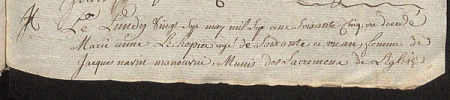 Le Lundy Vingt Six may mil Six cens Soixante Cinq, est decedé
Marie anne Lechopié agé de Soixante et un an, femme de
Jacques navin manouvrié, Munis des Sacremens de L'Eglise